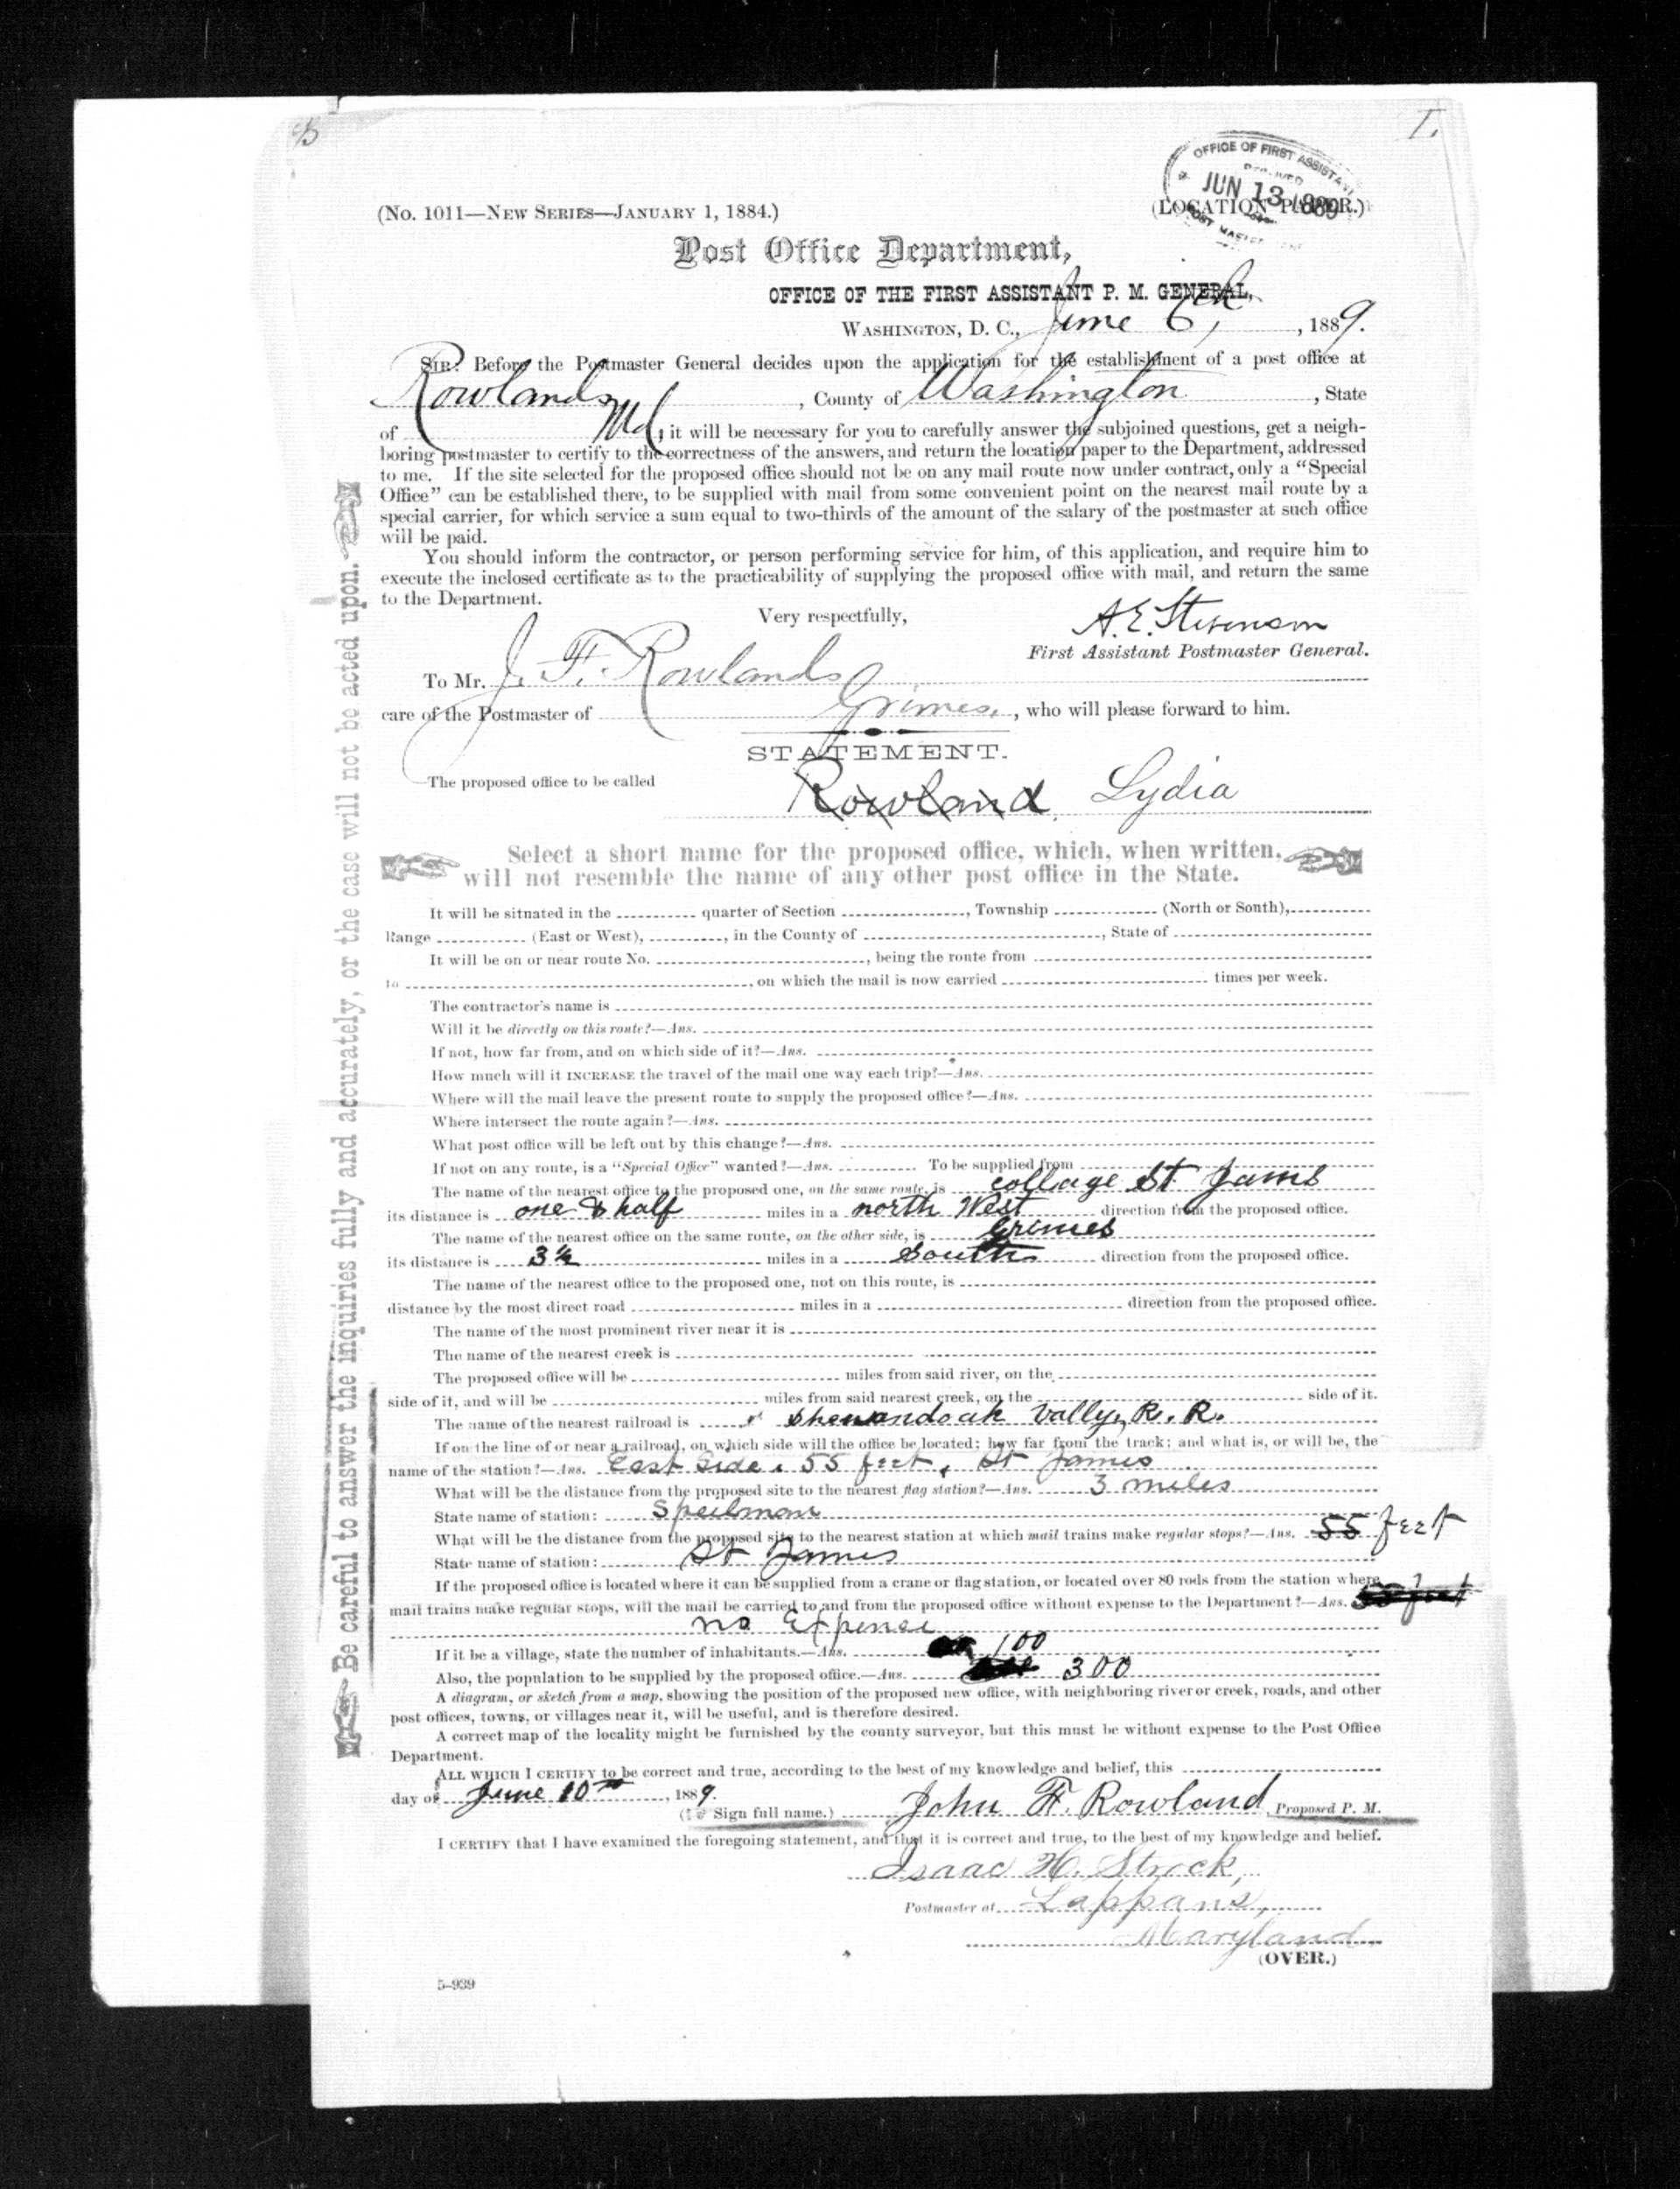 I.
OFFICE OF FIRST ASSISTANT
RECEIVED
JUN 13 1889
POST MASTER
(No. 1011—New Series—January 1, 1884.)
(LOCATION PAPER.)
Post Office Department,
OFFICE OF THE FIRST ASSISTANT P. M. GENERAL,
Washington, D. C., June 6th, 1889.
Sir: Before the Postmaster General decides upon the application for the establishment of a post office at
Rowlands, County of Washington, State
of Md, it will be necessary for you to carefully answer the subjoined questions, get a neigh-
boring postmaster to certify to the correctness of the answers, and return the location paper to the Department, addressed
to me. If the site selected for the proposed office should not be on any mail route now under contract, only a "Special
Office" can be established there, to be supplied with mail from some convenient point on the nearest mail route by a
special carrier, for which service a sum equal to two-thirds of the amount of the salary of the postmaster at such office
will be paid.
You should inform the contractor, or person performing service for him, of this application, and require him to
execute the inclosed certificate as to the practicability of supplying the proposed office with mail, and return the same
to the Department.
Very respectfully,
A. E. Stevenson
First Assistant Postmaster General.
To Mr. J. F. Rowlands
care of the Postmaster of Grimes, who will please forward to him.
STATEMENT.
The proposed office to be called Rowland Lydia
Select a short name for the proposed office, which, when written,
will not resemble the name of any other post office in the State.
It will be situated in the quarter of Section, Township (North or South),
Range (East or West), in the County of, State of
It will be on or near route No., being the route from
to, on which the mail is now carried times per week.
The contractor's name is
Will it be directly on this route?—Ans.
If not, how far from, and on which side of it?—Ans.
How much will it INCREASE the travel of the mail one way each trip?—Ans.
Where will the mail leave the present route to supply the proposed office?—Ans.
Where intersect the route again?—Ans.
What post office will be left out by this change?—Ans.
If not on any route, is a "Special Office" wanted?—Ans. To be supplied from
The name of the nearest office to the proposed one, on the same route, is collage St Jams
its distance is one & half miles in a north West direction from the proposed office.
The name of the nearest office on the same route, on the other side, is Grimes
its distance is 3½ miles in a South direction from the proposed office.
The name of the nearest office to the proposed one, not on this route, is
distance by the most direct road miles in a direction from the proposed office.
The name of the most prominent river near it is
The name of the nearest creek is
The proposed office will be miles from said river, on the
side of it, and will be miles from said nearest creek, on the side of it.
The name of the nearest railroad is Shenandoah Vally, R. R.
If on the line of or near a railroad, on which side will the office be located; how far from the track; and what is, or will be, the
name of the station?—Ans. East Side. 55 feet, St James
What will be the distance from the proposed site to the nearest flag station?—Ans. 3 miles
State name of station: Speilman
What will be the distance from the proposed site to the nearest station at which mail trains make regular stops?—Ans. 55 feet
State name of station: St James
If the proposed office is located where it can be supplied from a crane or flag station, or located over 80 rods from the station where
mail trains make regular stops, will the mail be carried to and from the proposed office without expense to the Department?—Ans.
no Expence
If it be a village, state the number of inhabitants.—Ans. 100
Also, the population to be supplied by the proposed office.—Ans. 300
A diagram, or sketch from a map, showing the position of the proposed new office, with neighboring river or creek, roads, and other
post offices, towns, or villages near it, will be useful, and is therefore desired.
A correct map of the locality might be furnished by the county surveyor, but this must be without expense to the Post Office
Department.
ALL WHICH I CERTIFY to be correct and true, according to the best of my knowledge and belief, this
day of June 10th, 1889.
(Sign full name.) John F. Rowland, Proposed P. M.
I CERTIFY that I have examined the foregoing statement, and that it is correct and true, to the best of my knowledge and belief.
Isaac H. Strock,
Postmaster at Lappans,
Maryland.
(OVER.)
5–939
Be careful to answer the inquiries fully and accurately, or the case will not be acted upon.